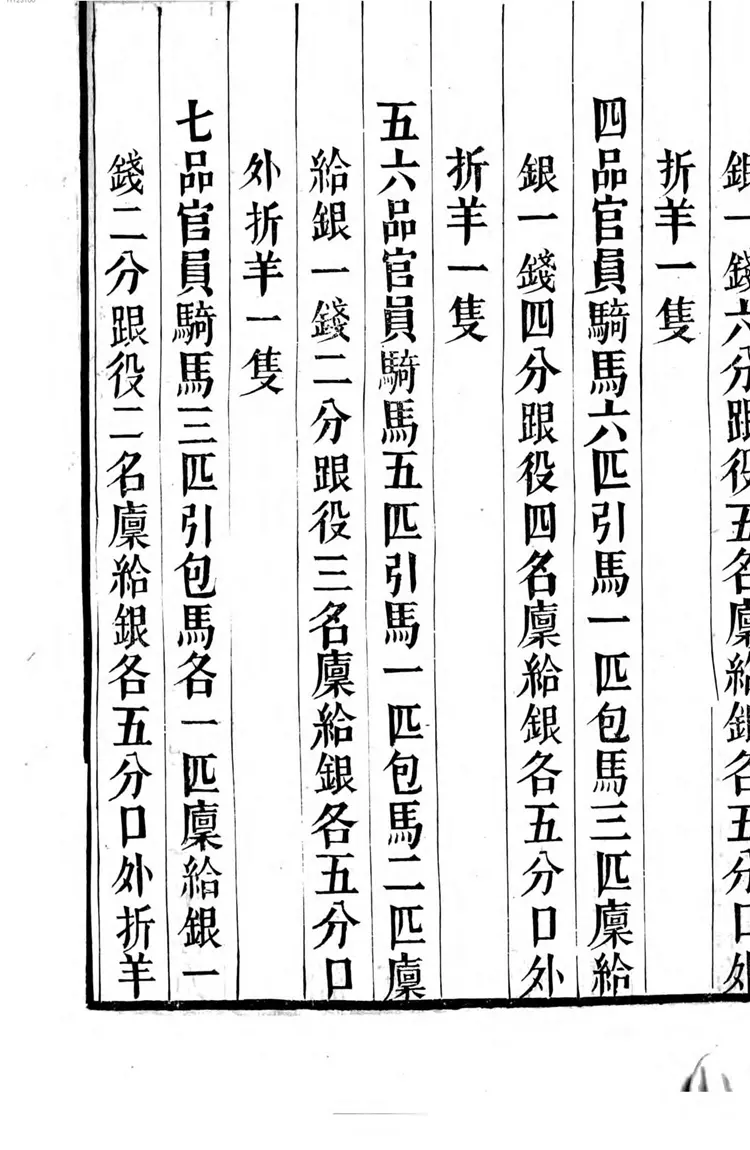 銀一錢六分跟役五名廩給銀各五分口外
折羊一隻
四品官員騎馬六匹引馬一匹包馬三匹廩給
銀一錢四分跟役四名廩給銀各五分口外
折羊一隻
五六品官員騎馬五匹引馬一匹包馬二匹廩
給銀一錢二分跟役三名廩給銀各五分口
外折羊一隻
七品官員騎馬三匹引包馬各一匹廩給銀一
錢二分跟役二名廩給銀各五分口外折羊